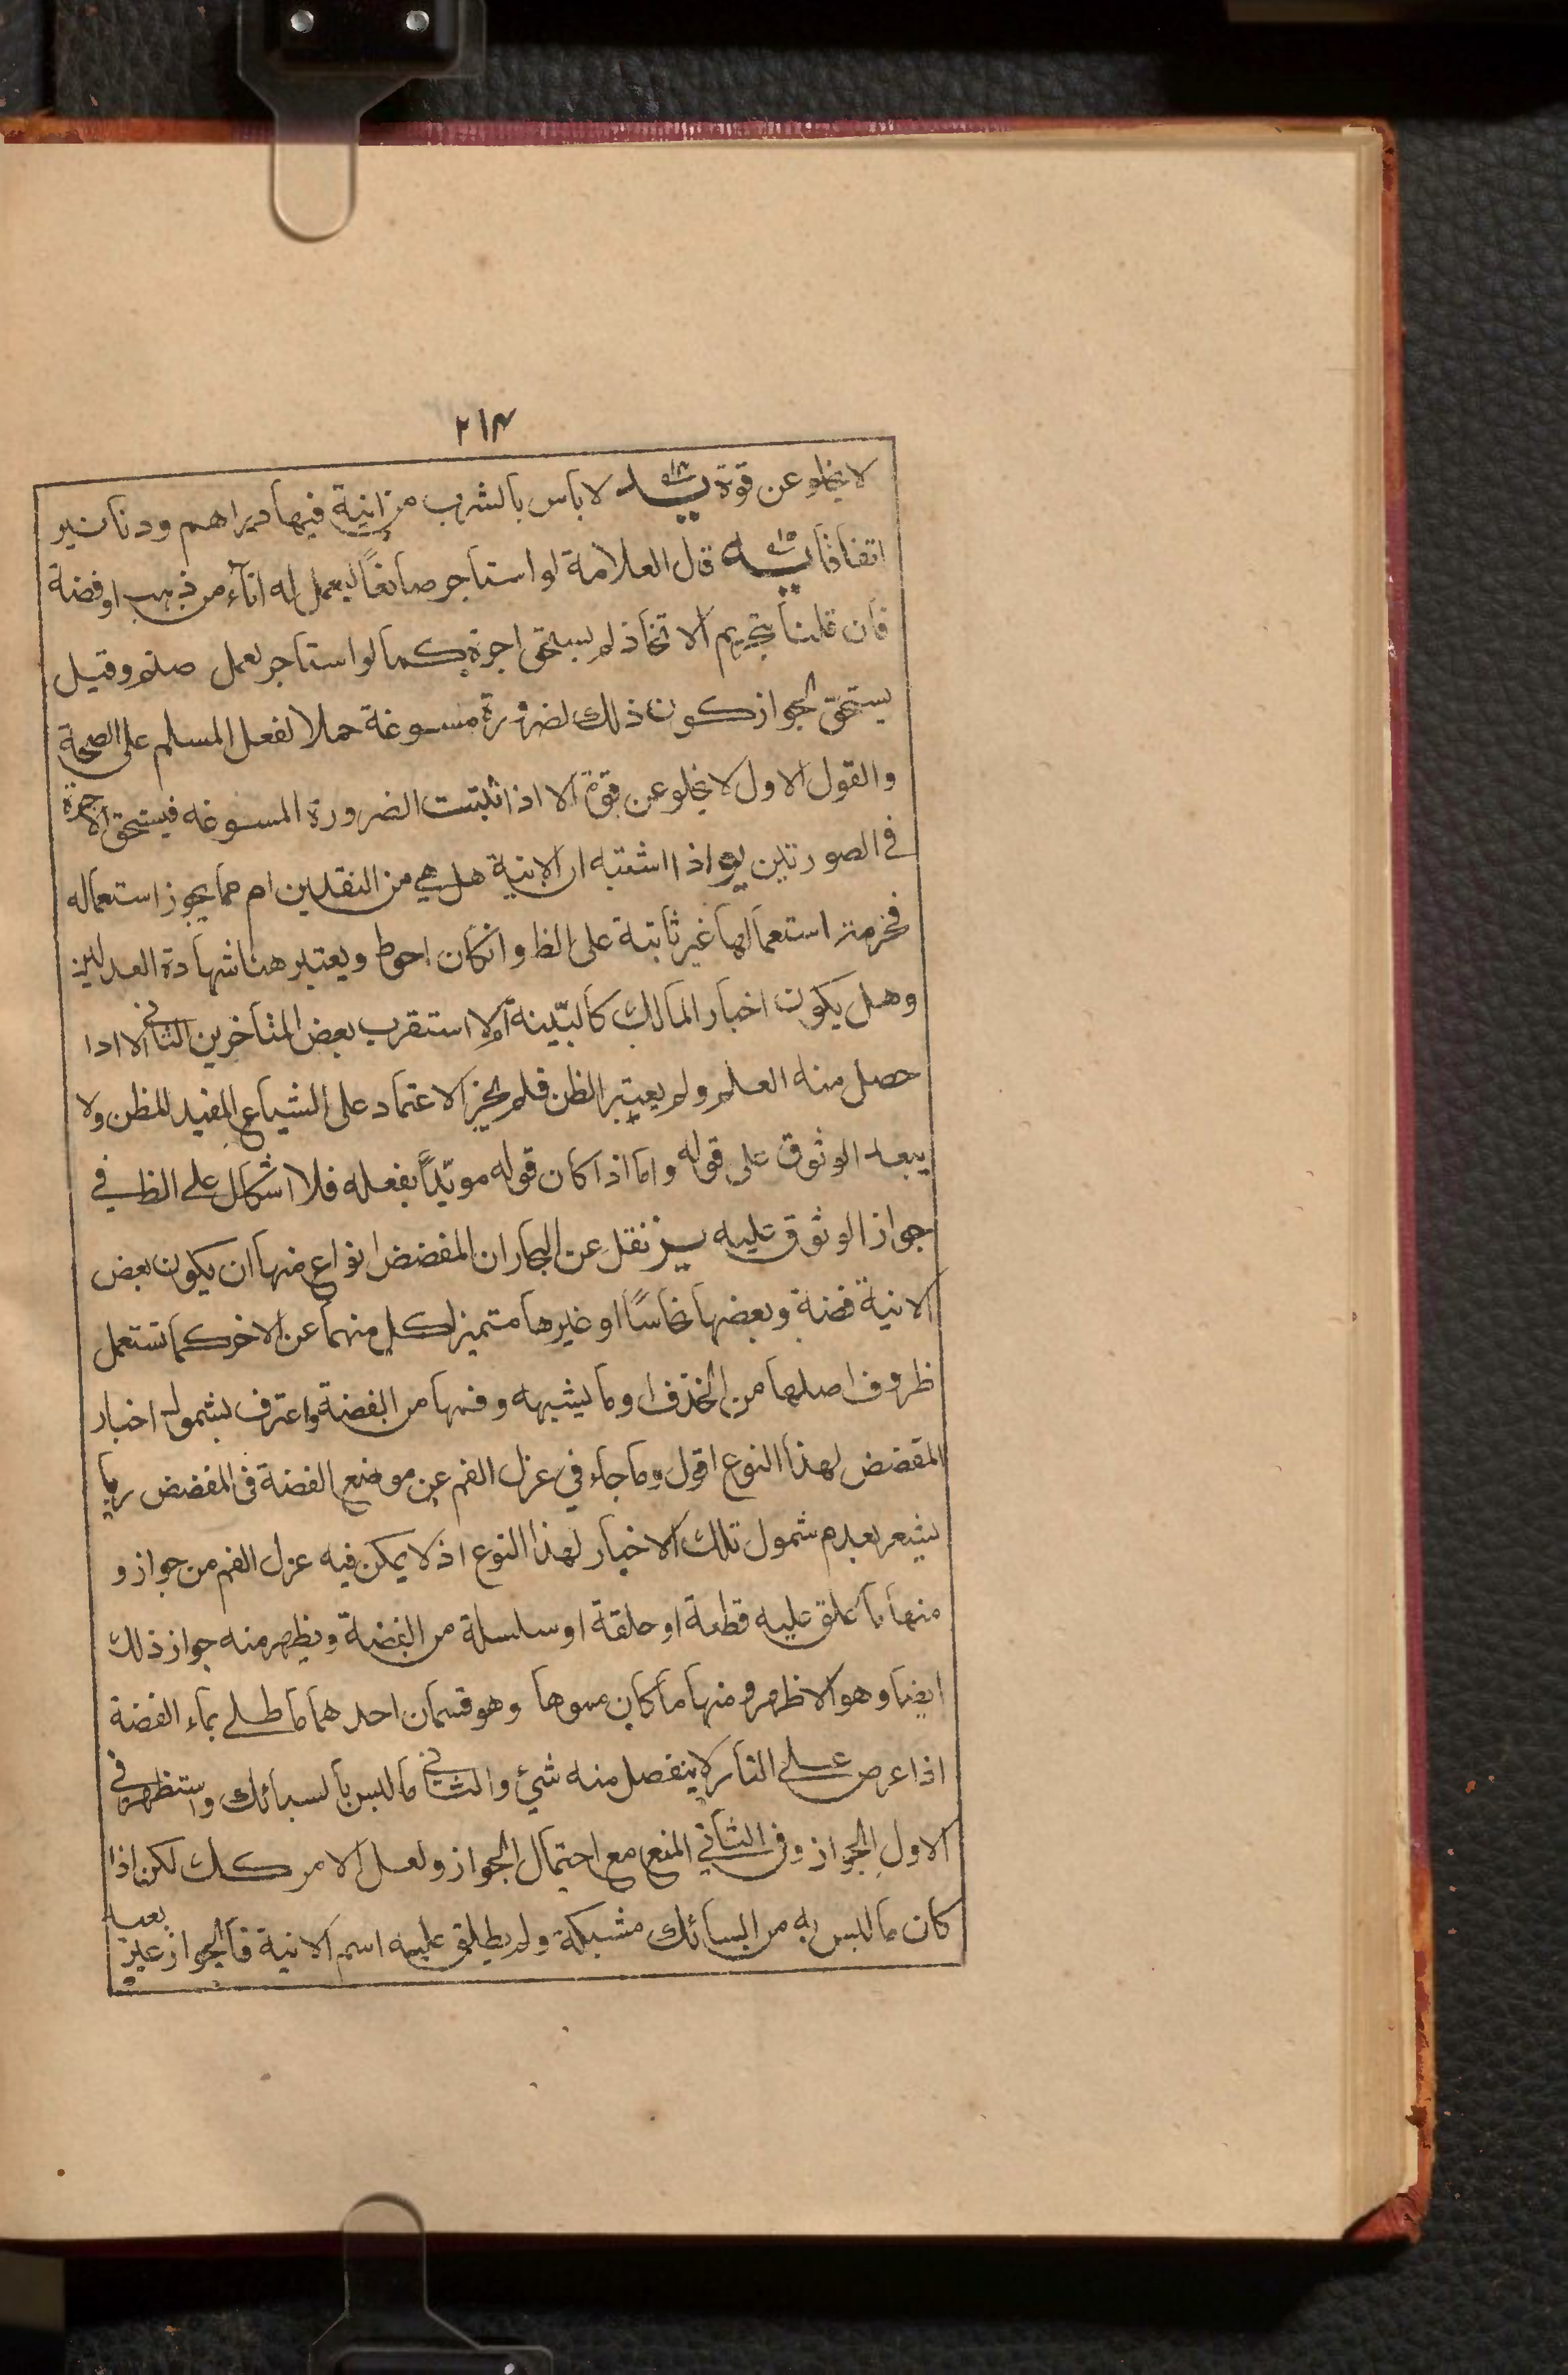 ٢١٤
لا يخلو عن قوة يد لا بأس بالشرب من انية فيها دراهم ودنانير
اتفاقا يه قال العلامة لو استاجر صائغاً ليعمل له اناء من ذهب او فضة
فان قلنا بتحريم الاتخاذ لم يستحق اجرة كما لو استاجر لعمل صنم وقيل
يستحق لجواز كون ذلك لضرورة مسوغة حملا لفعل المسلم على الصحة
والقول الاول لا يخلو عن قوة الا اذا ثبتت الضرورة المسوغه فيستحق الاجرة
في الصورتين يو اذا اشتبه ان الانية هل هي من النقدين ام مما يجوز استعماله
فحرمة استعمالها غير ثابتة على الظ وانكان احوط ويعتبر هنا شهادة العدلين
وهل يكون اخبار المالك كالبيّنة ام لا استقرب بعض المتاخرين الثاني الا اذا
حصل منه العلم ولم يعتبر الظن فلم يجز الاعتماد على الشياع المفيد للظن ولا
يبعد الوثوق على قوله واما اذا كان قوله مويّداً بفعله فلا اشكال على الظ في
جواز الوثوق عليه يز نقل عن البحار ان المفضض انواع منها ان يكون بعض
الانية فضة وبعضها نحاسًا او غيرها متميز كل منهما عن الاخر كما تستعمل
ظروف اصلها من الخزف او ما يشبهه وفمها من الفضة واعترف بشمول اخبار
المفضض لهذا النوع اقول وما جاء في عزل الفم عن موضع الفضة في المفضض ربما
يشعر بعدم شمول تلك الاخبار لهذا النوع اذ لا يمكن فيه عزل الفم من جواز و
منها ما علق عليه قطعة او حلقة او سلسلة من الفضة ويظهر منه جواز ذلك
ايضا وهو الاظهر ومنها ما كان مموها وهو قسمان احدهما ما طلي بماء الفضة
اذا عرض على النار لا ينفصل منه شئ والثاني ما لبس بالسبائك واستظهر في
الاول الجواز وفي الثاني المنع مع احتمال الجواز ولعل الامر كك لكن اذا
كان ما لبس به من السبائك مشبكة ولم يطلق عليه اسم الانية فالجواز غير بعيد